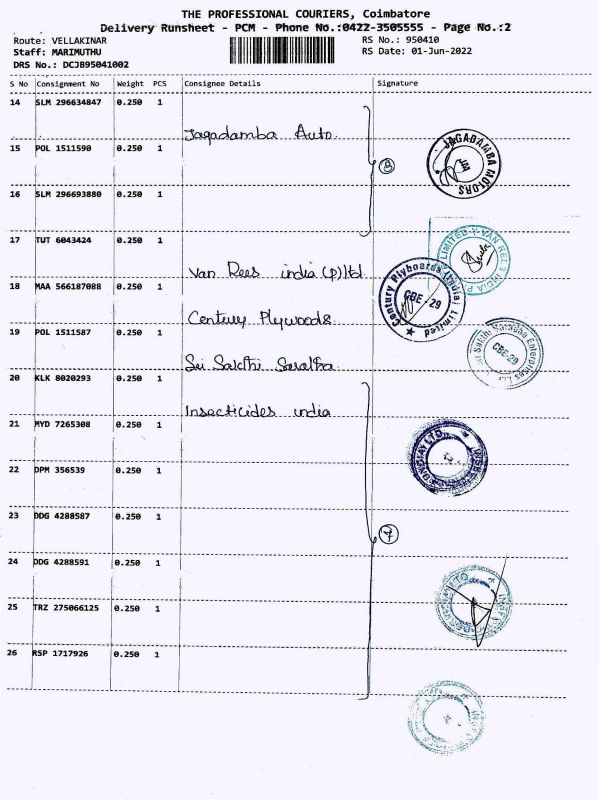 THE PROFESSIONAL COURIERS, Coimbatore
Delivery Runsheet - PCM - Phone No.:0422-3505555 - Page No.:2
Route: VELLAKINAR RS No.: 950410
Staff: MARIMUTHU RS Date: 01-Jun-2022
DRS No.: DCJB95041002
S No Consignment No Weight PCS Consignee Details Signature
14 SLM 296634847 0.250 1
Jagadamba Auto.
15 POL 1511590 0.250 1
JAGADAMBA MOTORS
16 SLM 296693880 0.250 1
17 TUT 6043424 0.250 1
Van Rees india (p) ltd
18 MAA 566187088 0.250 1
Century Plyboards (India) Limited
CBE - 29
Century Plywoods
19 POL 1511587 0.250 1
CBE-29
Sri Sakthi
20 KLK 8020293 0.250 1
Insecticides india
21 MYD 7265308 0.250 1
22 DPM 356539 0.250 1
23 DDG 4288587 0.250 1
7
24 DDG 4288591 0.250 1
25 TRZ 275066125 0.250 1
26 RSP 1717926 0.250 1